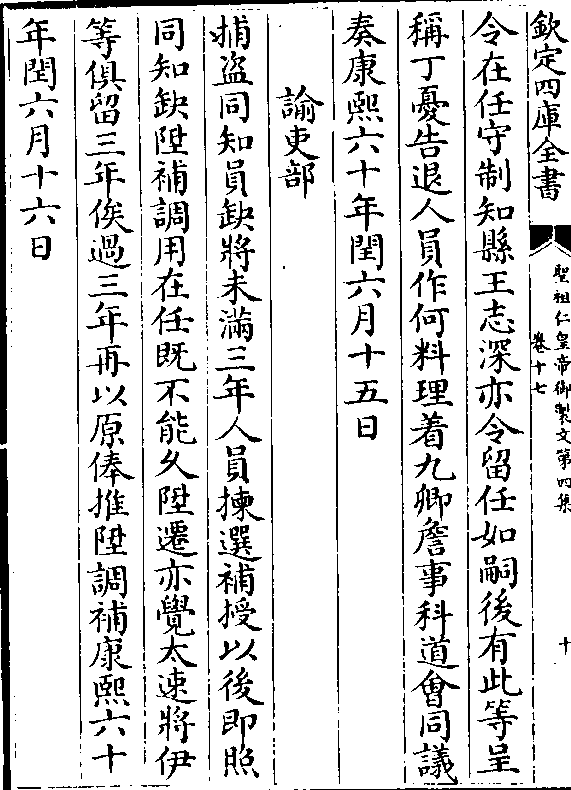 欽定四庫全書
聖祖仁皇帝御製文第四集
卷十七
十
令在任守制知縣王志深亦令留任如嗣後有此等呈
稱丁憂告退人員作何料理着九卿詹事科道會同議
奏康熙六十年閏六月十五日
諭吏部
捕盗同知員缺將未滿三年人員揀選補授以後即照
同知缺陞補調用在任既不能久陞遷亦覺太速將伊
等俱留三年俟過三年再以原俸推陞調補康熙六十
年閏六月十六日